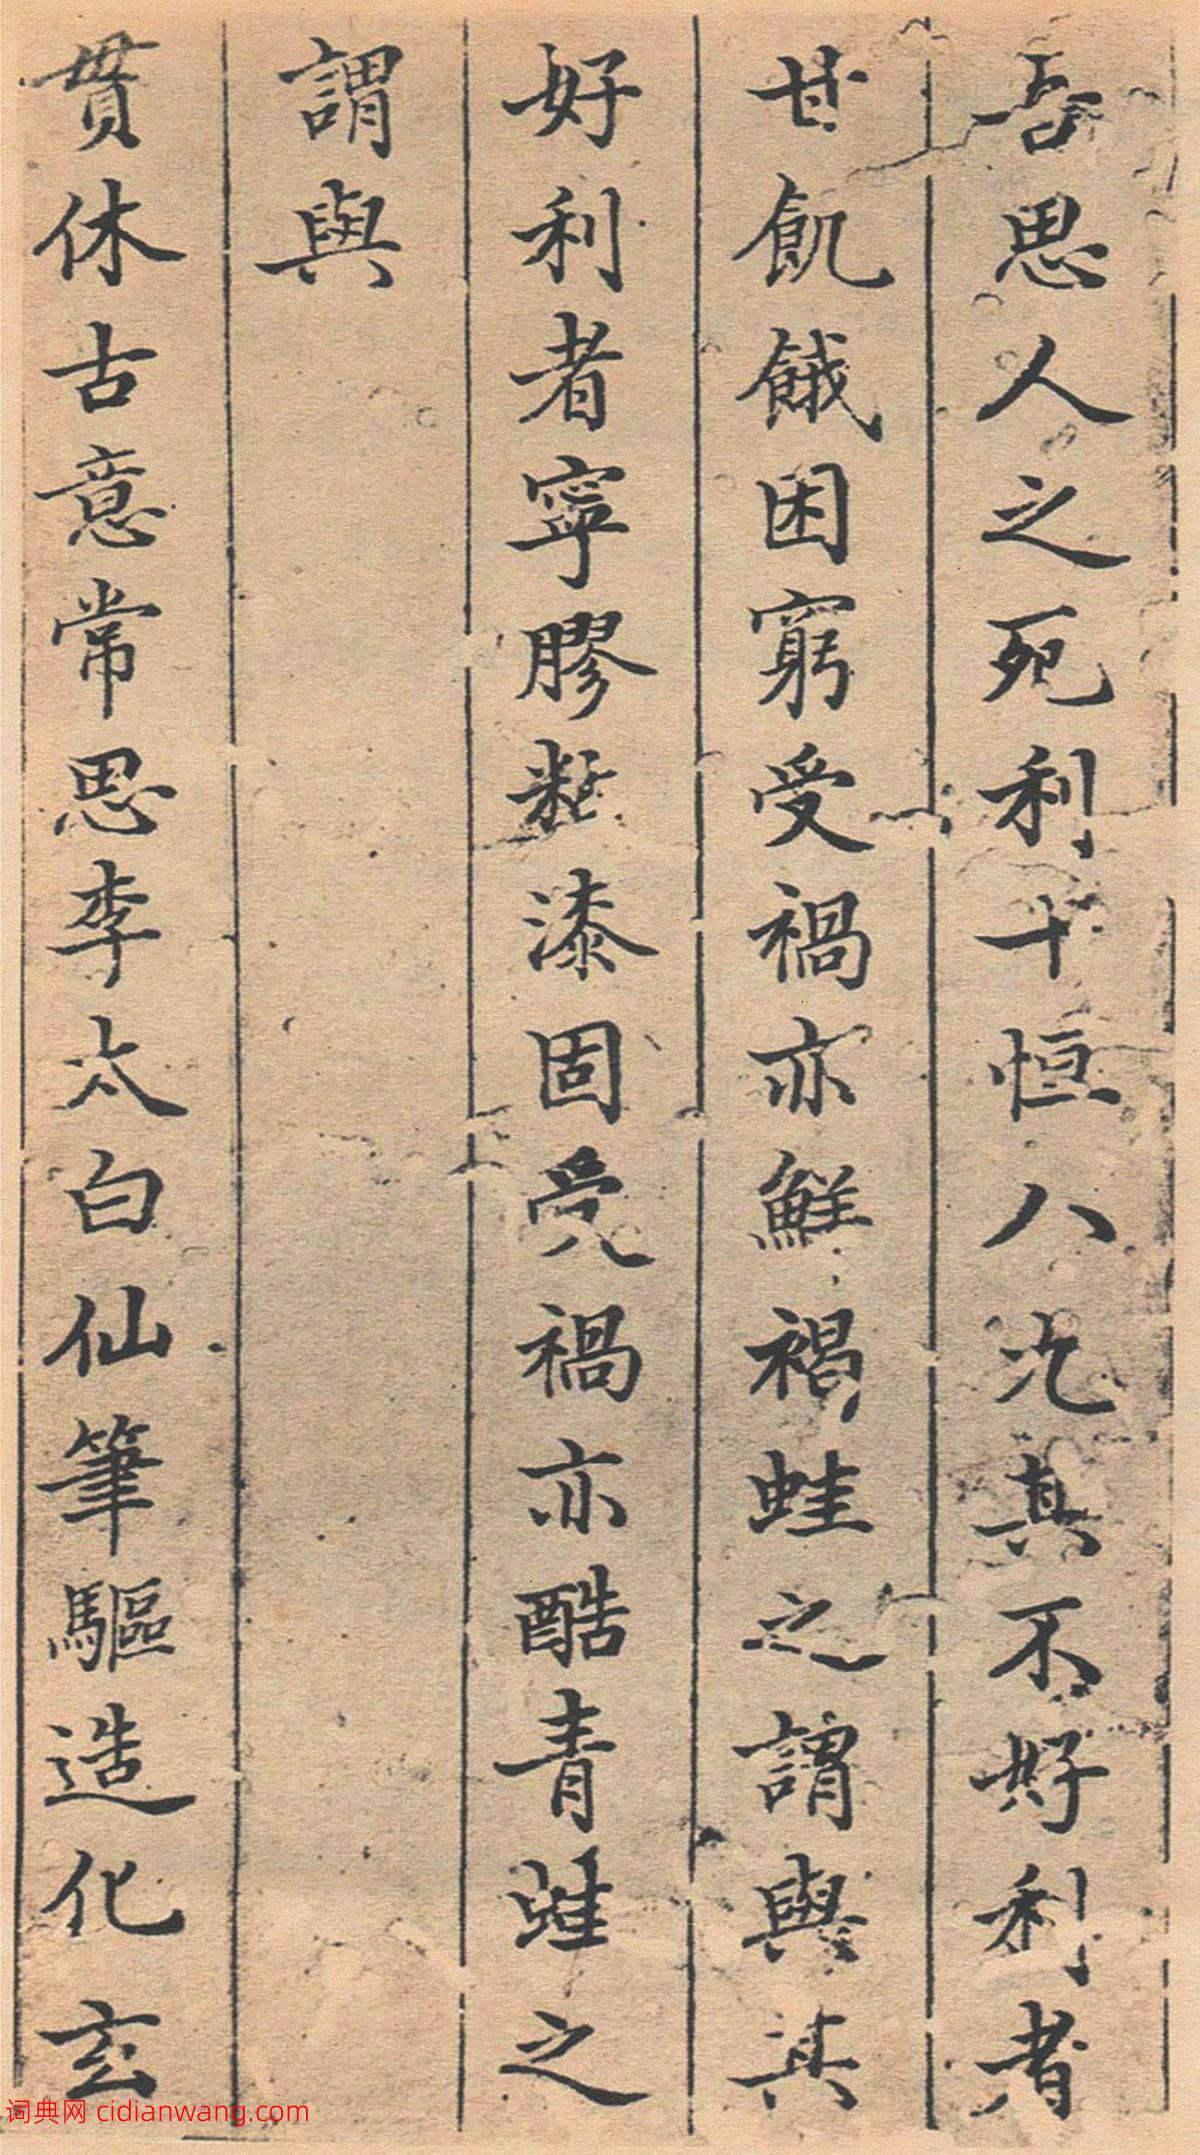 吾思人之死利十恒八九其不好利者
甘飢餓困窮受禍亦鮮褐蛙之謂與其
好利者寧膠黏漆固受禍亦酷青蛙之
謂與
貫休古意常思李太白仙筆驅造化玄
词典网 cidianwang.com